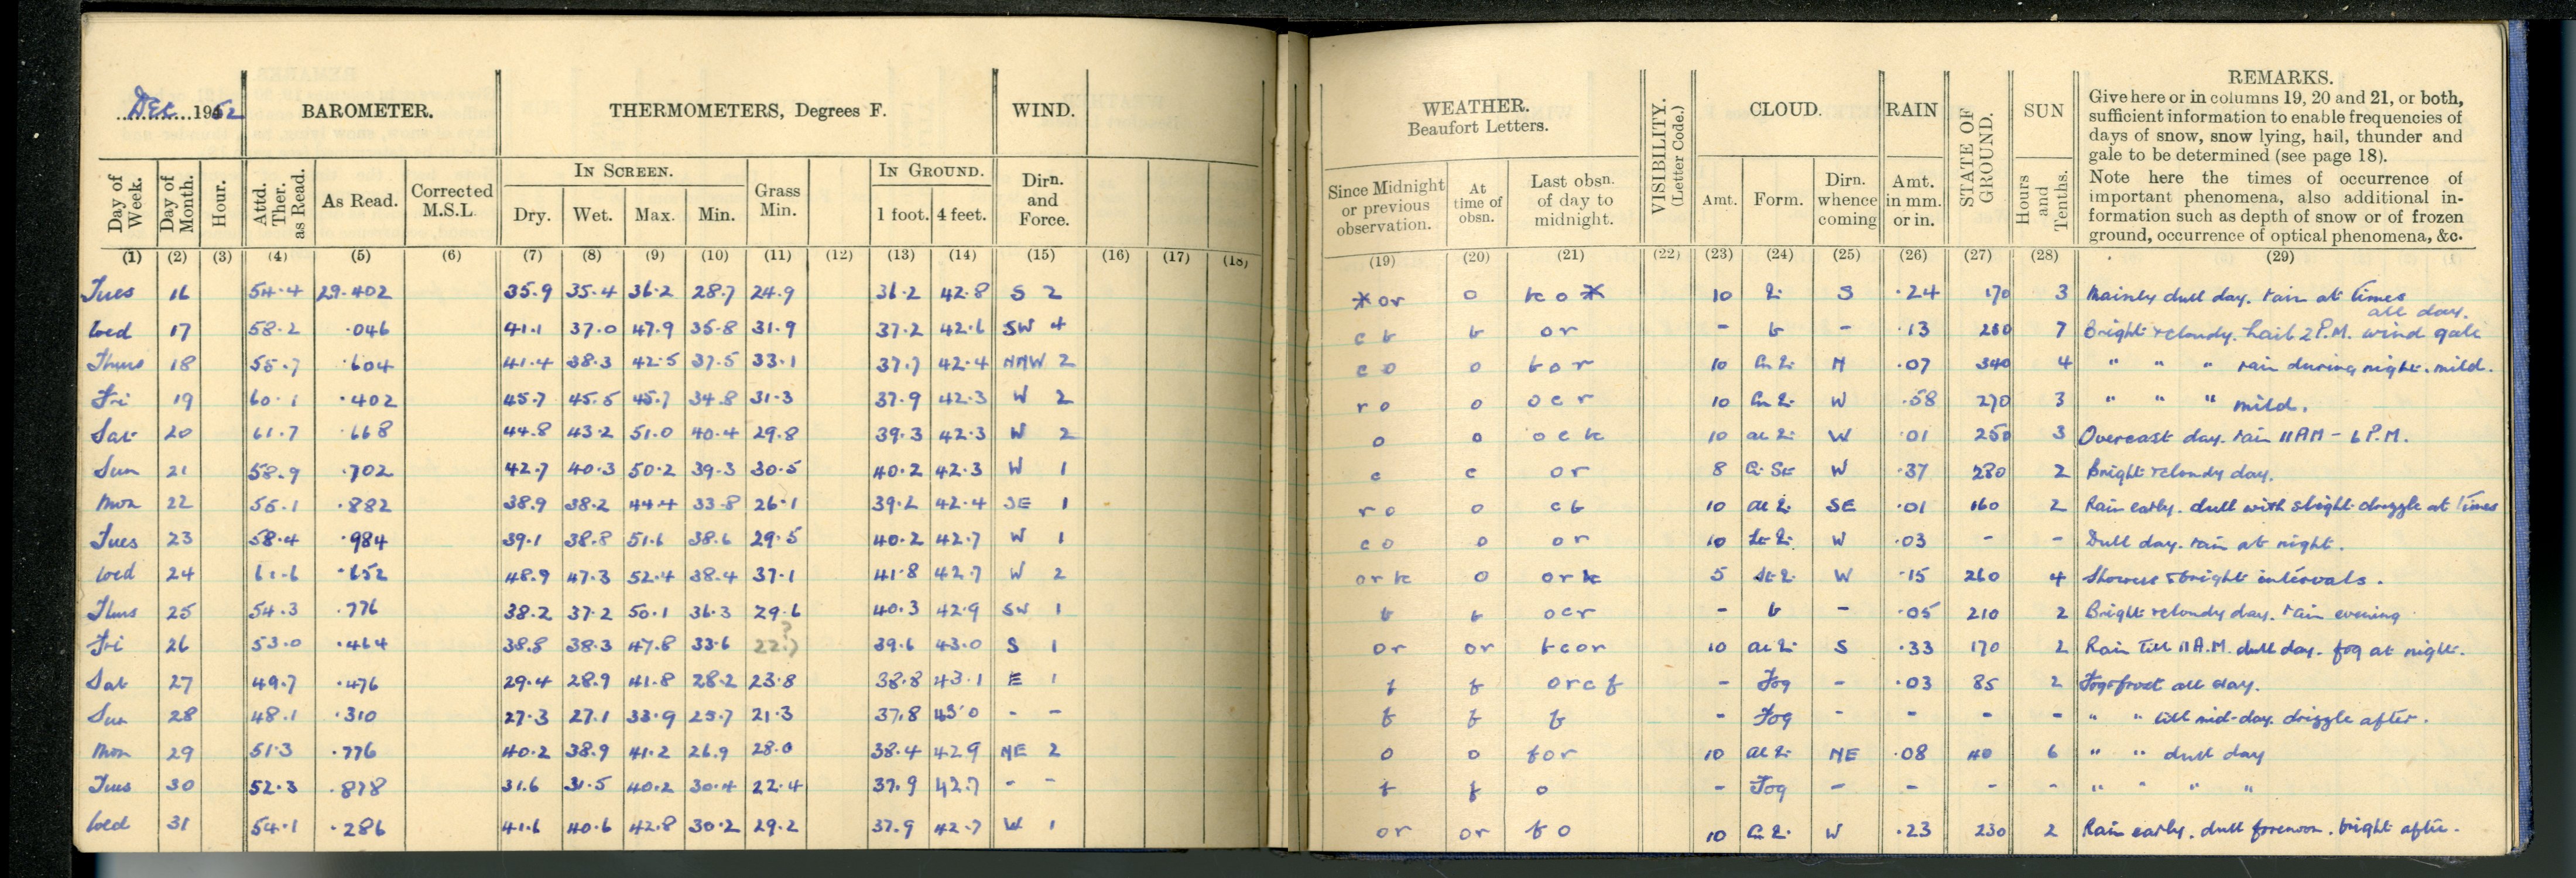 Dec 1952
BAROMETER.
THERMOMETERS, Degrees F.
WIND.
Day of Week.
Day of Month.
Hour.
Attd. Ther. as Read.
As Read.
Corrected M.S.L.
IN SCREEN.
Dry. Wet. Max. Min.
Grass Min.
IN GROUND.
1 foot. 4 feet.
Dirn. and Force.
(1) (2) (3) (4) (5) (6) (7) (8) (9) (10) (11) (12) (13) (14) (15) (16) (17) (18)
Tues 16 54.4 29.402 35.9 35.4 36.2 28.7 24.9 36.2 42.8 S 2
Wed 17 58.2 .046 41.1 37.0 47.9 35.8 31.9 37.2 42.6 SW 4
Thurs 18 55.7 .604 41.4 38.3 42.5 37.5 33.1 37.7 42.4 NNW 2
Fri 19 60.1 .402 45.7 45.5 45.7 34.8 31.3 37.9 42.3 W 2
Sat 20 61.7 .668 44.8 43.2 51.0 40.4 29.8 39.3 42.3 W 2
Sun 21 58.9 .702 42.7 40.3 50.2 39.3 30.5 40.2 42.3 W 1
Mon 22 55.1 .882 38.9 38.2 44.4 33.8 26.1 39.2 42.4 SE 1
Tues 23 58.4 .984 39.1 38.8 51.6 38.6 29.5 40.2 42.7 W 1
Wed 24 61.6 .652 48.9 47.3 52.4 38.4 37.1 41.8 42.7 W 2
Thurs 25 54.3 .776 38.2 37.2 50.1 36.3 29.6 40.3 42.9 SW 1
Fri 26 53.0 .464 38.8 38.3 47.8 33.6 22.? 39.6 43.0 S 1
Sat 27 49.7 .476 29.4 28.9 41.8 28.2 23.8 38.8 43.1 E 1
Sun 28 48.1 .310 27.3 27.1 33.9 25.7 21.3 37.8 43.0 - -
Mon 29 51.3 .776 40.2 38.9 41.2 26.9 28.0 38.4 42.9 NE 2
Tues 30 52.3 .878 31.6 31.5 40.2 30.4 22.4 37.9 42.7 - -
Wed 31 54.1 .286 41.6 40.6 42.8 30.2 29.2 37.9 42.7 W 1
WEATHER.
Beaufort Letters.
Since Midnight or previous observation.
At time of obsn.
Last obsn. of day to midnight.
VISIBILITY. (Letter Code.)
CLOUD.
Amt. Form. Dirn. whence coming
RAIN
Amt. in mm. or in.
STATE OF GROUND.
SUN
Hours and Tenths.
REMARKS.
Give here or in columns 19, 20 and 21, or both,
sufficient information to enable frequencies of
days of snow, snow lying, hail, thunder and
gale to be determined (see page 18).
Note here the times of occurrence of
important phenomena, also additional in-
formation such as depth of snow or of frozen
ground, occurrence of optical phenomena, &c.
(19) (20) (21) (22) (23) (24) (25) (26) (27) (28) (29)
o r o o 10 S .24 170 3 Mainly dull day. rain at times all day.
c b b o r - b - .13 260 7 Bright & cloudy. hail 2 P.M. wind gale
c o o b o r 10 N .07 340 4 " " " rain during night. mild.
r o o o c r 10 W .58 270 3 " " " mild.
o o o c 10 W .01 250 3 Overcast day. rain 11 AM - 6 P.M.
c c o r 8 Ci St W .37 280 2 Bright & cloudy day.
r o o c b 10 SE .01 160 2 Rain early. dull with slight drizzle at times
c o o o r 10 W .03 - - Dull day. rain at night.
o r o o r 5 W .15 260 4 Showers & bright intervals.
b b o c r - b - .05 210 2 Bright & cloudy day. rain evening
o r o r b c o r 10 S .33 170 2 Rain till 11 A.M. dull day. fog at night.
f f o r c f - Fog - .03 85 2 Fog & frost all day.
f f f - Fog - - - - " " till mid-day. drizzle after.
o o f o r 10 NE .08 40 6 " " dull day
f f o - Fog - - - - " " " "
o r o r b o 10 W .23 230 2 Rain early. dull forenoon. bright after.